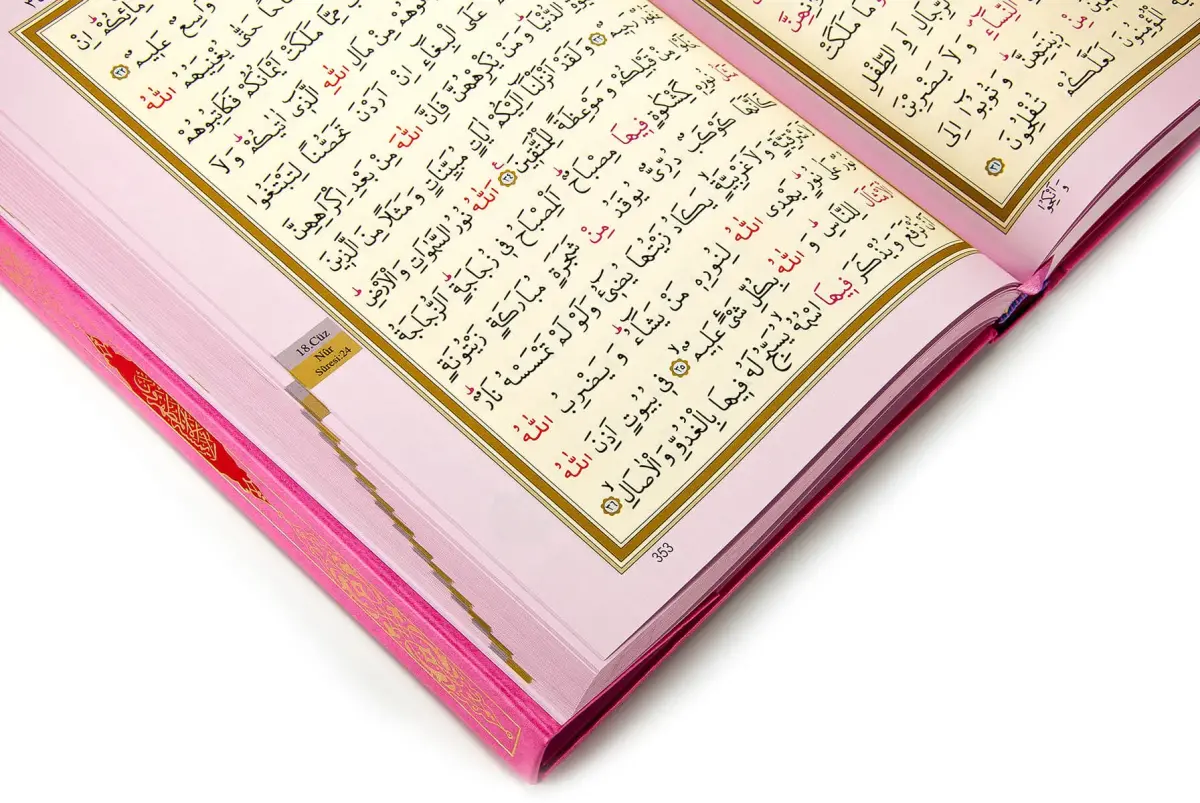 مَا مَلَكَتْ
الرِّجَالِ اَوِ الطِّفْلِ
النِّسَٓاءِ وَلَا يَضْرِبْنَ
مِنْ زِينَتِهِنَّ وَتُوبُٓوا اِلَى
الْمُؤْمِنُونَ لَعَلَّكُمْ تُفْلِحُونَ ٣١
وَاَنْكِحُوا
اِنْ
وَاسِعٌ عَلِيمٌ ٣٢
حَتّٰى يُغْنِيَهُمُ اللّٰهُ
مِمَّا مَلَكَتْ اَيْمَانُكُمْ فَكَاتِبُوهُمْ
مِنْ مَالِ اللّٰهِ الَّذِٓي اٰتٰيكُمْ وَلَا
عَلَى الْبِغَٓاءِ اِنْ اَرَدْنَ تَحَصُّنًا لِتَبْتَغُوا
الدُّنْيَا وَمَنْ يُكْرِهْهُنَّ فَاِنَّ اللّٰهَ مِنْ بَعْدِ اِكْرَاهِهِنَّ
غَفُورٌ رَحِيمٌ ٣٣ وَلَقَدْ اَنْزَلْنَٓا اِلَيْكُمْ اٰيَاتٍ مُبَيِّنَاتٍ وَمَثَلًا مِنَ الَّذِينَ
مِنْ قَبْلِكُمْ وَمَوْعِظَةً لِلْمُتَّقِينَ ٣٤ اَللّٰهُ نُورُ السَّمٰوَاتِ وَالْاَرْضِ
نُورِهِ كَمِشْكٰوةٍ فِيهَا مِصْبَاحٌ اَلْمِصْبَاحُ فِي زُجَاجَةٍ اَلزُّجَاجَةُ
كَاَنَّهَا كَوْكَبٌ دُرِّيٌّ يُوقَدُ مِنْ شَجَرَةٍ مُبَارَكَةٍ زَيْتُونَةٍ
شَرْقِيَّةٍ وَلَا غَرْبِيَّةٍ يَكَادُ زَيْتُهَا يُضِٓيءُ وَلَوْ لَمْ تَمْسَسْهُ نَارٌ
نُورٌ عَلٰى نُورٍ يَهْدِي اللّٰهُ لِنُورِهِ مَنْ يَشَٓاءُ وَيَضْرِبُ اللّٰهُ
الْاَمْثَالَ لِلنَّاسِ وَاللّٰهُ بِكُلِّ شَيْءٍ عَلِيمٌ ٣٥ فِي بُيُوتٍ اَذِنَ اللّٰهُ
تُرْفَعَ وَيُذْكَرَ فِيهَا اسْمُهُ يُسَبِّحُ لَهُ فِيهَا بِالْغُدُوِّ وَالْاٰصَالِ ٣٦
18.Cüz
Nûr
Sûresi:24
353